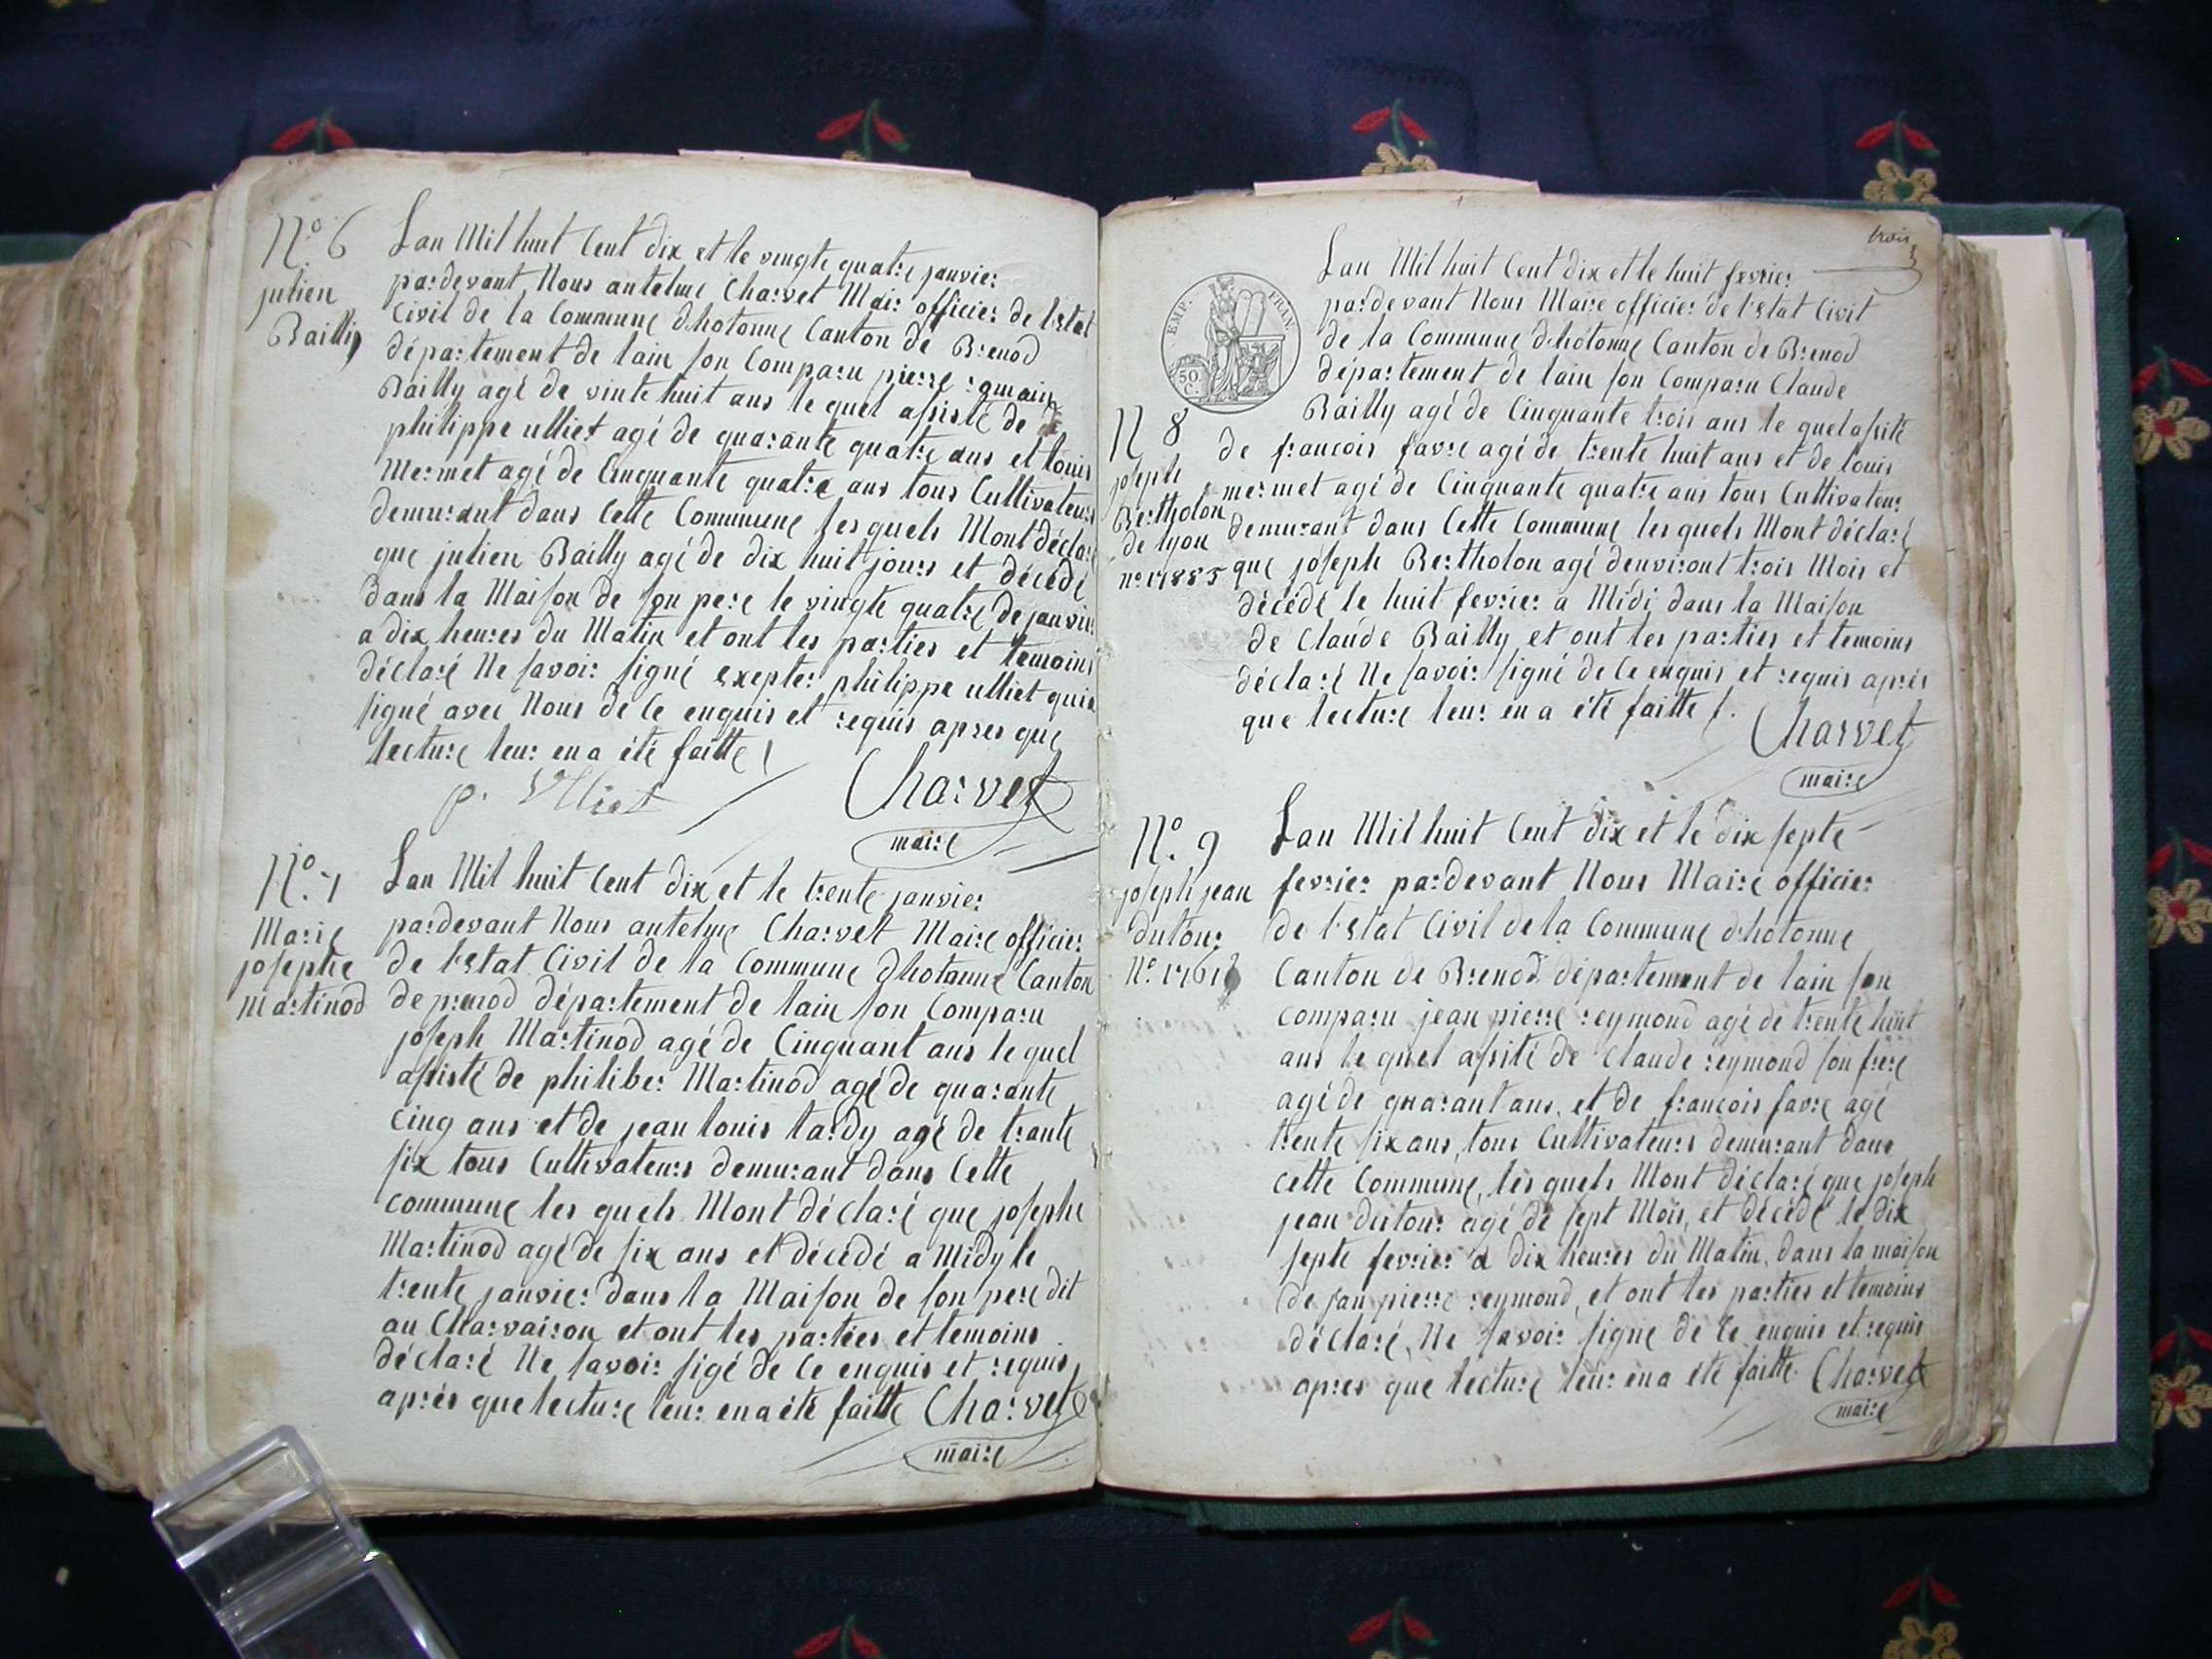 N.º 6
julien
Bailly
Lan Mil huit Cent dix et le vingte quatre janvier
pardevant Nous antelme Charvet Mair officier de l'Estat
Civil de la Commune dhotonne Canton de Brenod
département de lain son Comparu pierre romain
Bailly agé de vinte huit ans le quel assisté de
philippe ulliet agé de quarante quatre ans et louis
Mermet agé de Cinquante quatre ans tous Cultivateurs
demurant dans Cette Commune les quels Mont déclaré
que julien Bailly agé de dix huit jours et décédé
dans la Maison de son pere le vingte quatre de janvier
a dix heures du Matin et ont les parties et temoins
déclaré Ne savoir signé exepter philippe ulliet qui a
signé avec Nous de Ce enquis et requis apres que
lecture leur en a été faitte
p. Ulliet Charvet
maire
N.º 7
Marie
josephte
Martinod
Lan Mil huit Cent dix et le trente janvier
pardevant Nous antelme Charvet Maire officier
de l'Estat Civil de la Commune dhotonne Canton
de prenod département de lain son Comparu
joseph Martinod agé de Cinquant ans le quel
assisté de philiber Martinod agé de quarante
Cinq ans et de jean louis tardy agé de trante
six tous Cultivateurs demurant dans Cette
commune les quels Mont déclaré que josephe
Martinod agé de six ans et décédé a Midy le
trente janvier dans la Maison de son pere dit
au Charvairon et ont les parties et temoins
déclaré Ne savoir sigé de Ce enquis et requis
après que lecture leur en a été faitte Charvet
maire
trois
3
EMP. FRAN.
50 C.
N 8
joseph
Bertholon
de lyon
nº 17885
Lan Mil huit Cent dix et le huit fevrier
pardevant Nous Maire officier de l'Estat Civil
de la Commune dhotonne Canton de Brenod
département de lain son Comparu Claude
Bailly agé de Cinquante trois ans le quel assité
de francois favre agé de trente huit ans et de louis
mermet agé de Cinquante quatre ans tous Cultivateurs
demurant dans Cette Commune les quels Mont déclaré
que joseph Bertholon agé denviront trois Mois et
décédé le huit fevrier a Midi dans la Maison
de Claude Bailly et ont les parties et temoins
déclaré Ne savoir signé de Ce enquis et requis après
que lecture leur en a été faitte
Charvet
maire
N.º 9
joseph jean
dutour
Nº
Lan Mil huit Cent dix et le dix septe
fevrier pardevant Nous Maire officier
de l'Estat Civil de la Commune dhotonne
Canton de Brenod département de lain son
comparu jean pierre reymond agé de trente huit
ans le quel assité de Claude reymond son frere
agé de quarant ans et de françois favre agé
trente six ans, tous Cultivateurs demurant dans
cette Commune, les quels Mont déclaré que joseph
jean dutour agé de sept Mois, et décédé le dix
septe fevrier a dix heures du Matin, dans la maison
de jan pierre reymond, et ont les parties et temoins
déclaré, Ne savoir signe de Ce enquis et requis
apres que lecture leur en a été faitte Charvet
maire